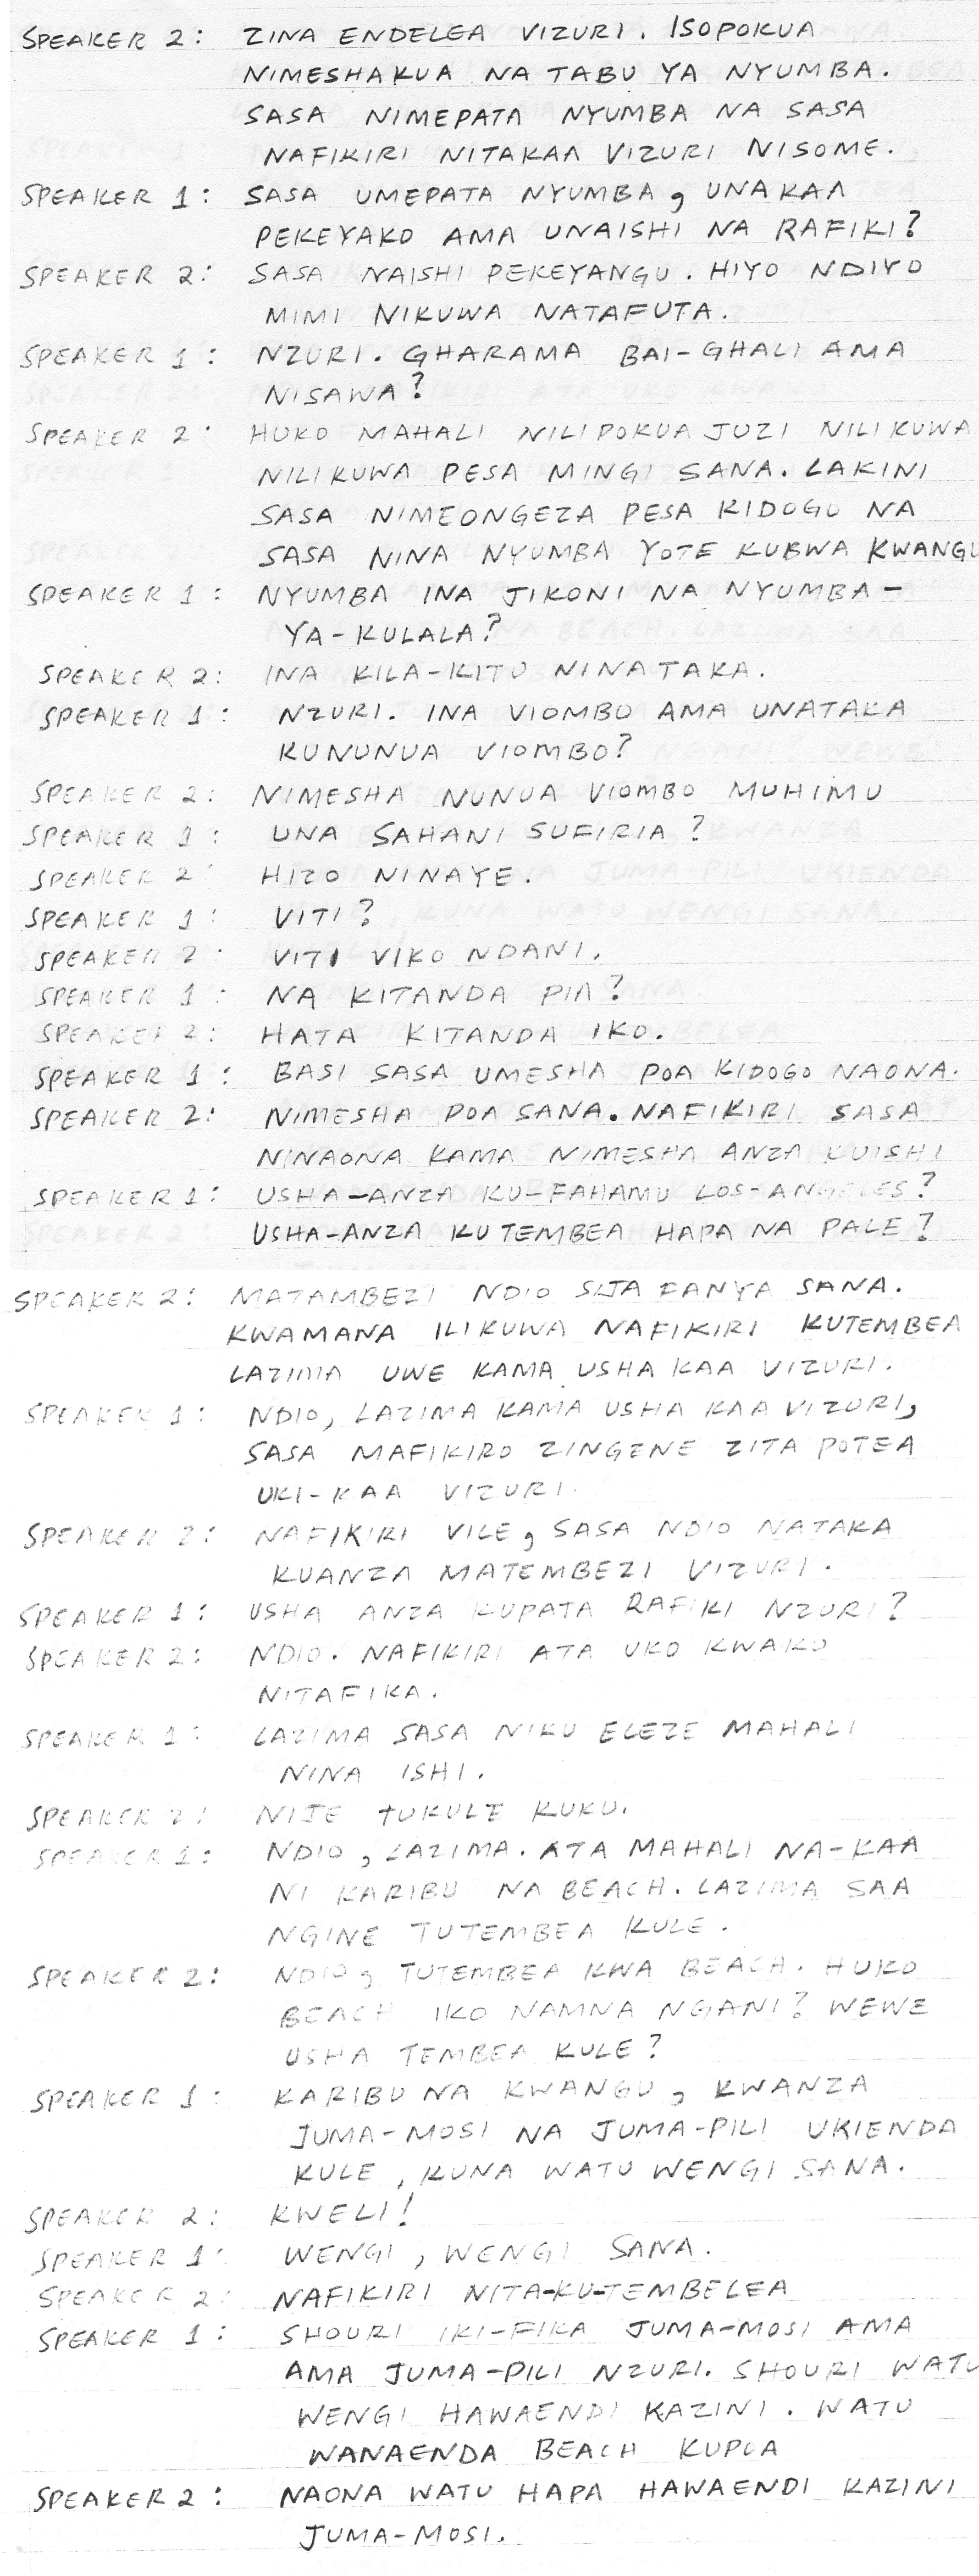 SPEAKER 2: ZINA ENDELEA VIZURI. ISOPOKUA
NIMESHAKUA NA TABU YA NYUMBA.
SASA NIMEPATA NYUMBA NA SASA
NAFIKIRI NITAKAA VIZURI NISOME.
SPEAKER 1: SASA UMEPATA NYUMBA, UNAKAA
PEKEYAKO AMA UNAISHI NA RAFIKI?
SPEAKER 2: SASA NAISHI PEKEYANGU. HIYO NDIYO
MIMI NIKUWA NATAFUTA.
SPEAKER 1: NZURI. GHARAMA BAI-GHALI AMA
NISAWA?
SPEAKER 2: HUKO MAHALI NILIPOKUA JUZI NILIKUWA
NILIKUWA PESA MINGI SANA. LAKINI
SASA NIMEONGEZA PESA KIDOGO NA
SASA NINA NYUMBA YOTE KUBWA KWANGU
SPEAKER 1: NYUMBA INA JIKONI NA NYUMBA-
YA-KULALA?
SPEAKER 2: INA KILA-KITU NINATAKA.
SPEAKER 1: NZURI. INA VIOMBO AMA UNATAKA
KUNUNUA VIOMBO?
SPEAKER 2: NIMESHA NUNUA VIOMBO MUHIMU
SPEAKER 1: UNA SAHANI SUFIRIA?
SPEAKER 2: HIZO NINAYE.
SPEAKER 1: VITI?
SPEAKER 2: VITI VIKO NDANI.
SPEAKER 1: NA KITANDA PIA?
SPEAKER 2: HATA KITANDA IKO.
SPEAKER 1: BASI SASA UMESHA POA KIDOGO NAONA.
SPEAKER 2: NIMESHA POA SANA. NAFIKIRI SASA
NINAONA KAMA NIMESHA ANZA KUISHI
SPEAKER 1: USHA-ANZA KU-FAHAMU LOS-ANGELES?
USHA-ANZA KUTEMBEA HAPA NA PALE?
SPEAKER 2: MATAMBEZI NDIO SIJA FANYA SANA.
KWAMANA ILIKUWA NAFIKIRI KUTEMBEA
LAZIMA UWE KAMA USHA KAA VIZURI.
SPEAKER 1: NDIO, LAZIMA KAMA USHA KAA VIZURI,
SASA MAFIKIRO ZINGENE ZITA POTEA
UKI-KAA VIZURI.
SPEAKER 2: NAFIKIRI VILE, SASA NDIO NATAKA
KUANZA MATEMBEZI VIZURI.
SPEAKER 1: USHA ANZA KUPATA RAFIKI NZURI?
SPEAKER 2: NDIO. NAFIKIRI ATA UKO KWAKO
NITAFIKA.
SPEAKER 1: LAZIMA SASA NIKU ELEZE MAHALI
NINA ISHI.
SPEAKER 2: NIJE TUKULE KUKU.
SPEAKER 1: NDIO, LAZIMA. ATA MAHALI NA-KAA
NI KARIBU NA BEACH. LAZIMA SAA
NGINE TUTEMBEA KULE.
SPEAKER 2: NDIO, TUTEMBEA KWA BEACH. HUKO
BEACH IKO NAMNA NGANI? WEWE
USHA TEMBEA KULE?
SPEAKER 1: KARIBU NA KWANGU, KWANZA
JUMA-MOSI NA JUMA-PILI UKIENDA
KULE, KUNA WATU WENGI SANA.
SPEAKER 2: KWELI!
SPEAKER 1: WENGI, WENGI SANA.
SPEAKER 2: NAFIKIRI NITA-KU-TEMBELEA
SPEAKER 1: SHOURI IKI-FIKA JUMA-MOSI AMA
AMA JUMA-PILI NZURI. SHOURI WATU
WENGI HAWAENDI KAZINI. WATU
WANAENDA BEACH KUPOA
SPEAKER 2: NAONA WATU HAPA HAWAENDI KAZINI
JUMA-MOSI.